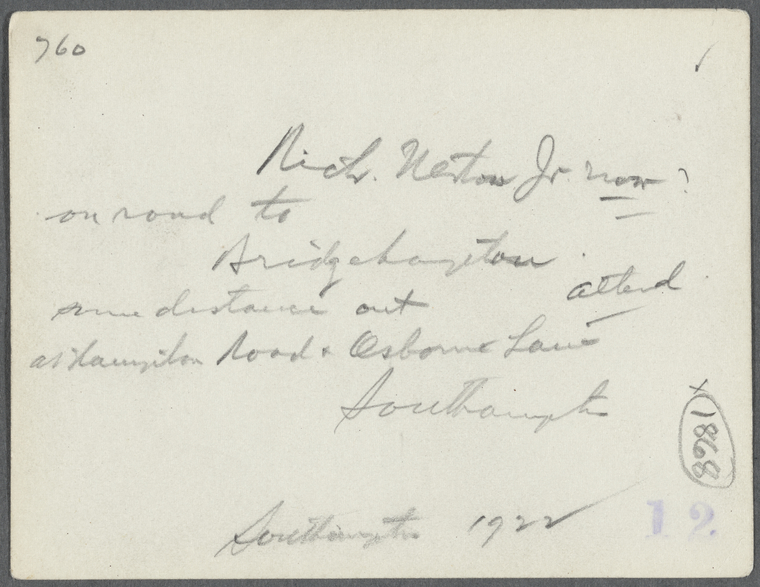 760
Rich. Newton Jr. now?
on road to
Bridgehampton
some distance out altered
at Hampton Road & Osborne Lane
Southampton
x 1868
Southampton 1922
12